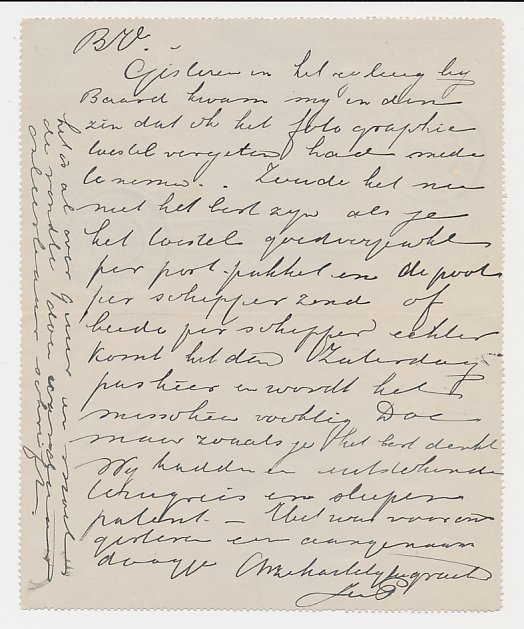 B.V.
Gisteren in het rijtuig by
Baard kwam my in den
zin dat ik het fotographie
toestel vergeten had mede
te nemen. . Zoude het nu
niet het best zyn als je
het toestel goed verpakt
per post-pakket en de poot
per schipper zend of
beide per schipper echter
komt het dan Zaterdag
pas hier en wordt het
misschien vochtig Doe
maar zooals je het best denkt
Wy hadden een uitstekende
terugreis en sliepen
patent. — Het was voor ons
gisteren een aangenaam
daagje Onze hartelyke groet
het is al over 9 uur en moet ik
de rondte doen